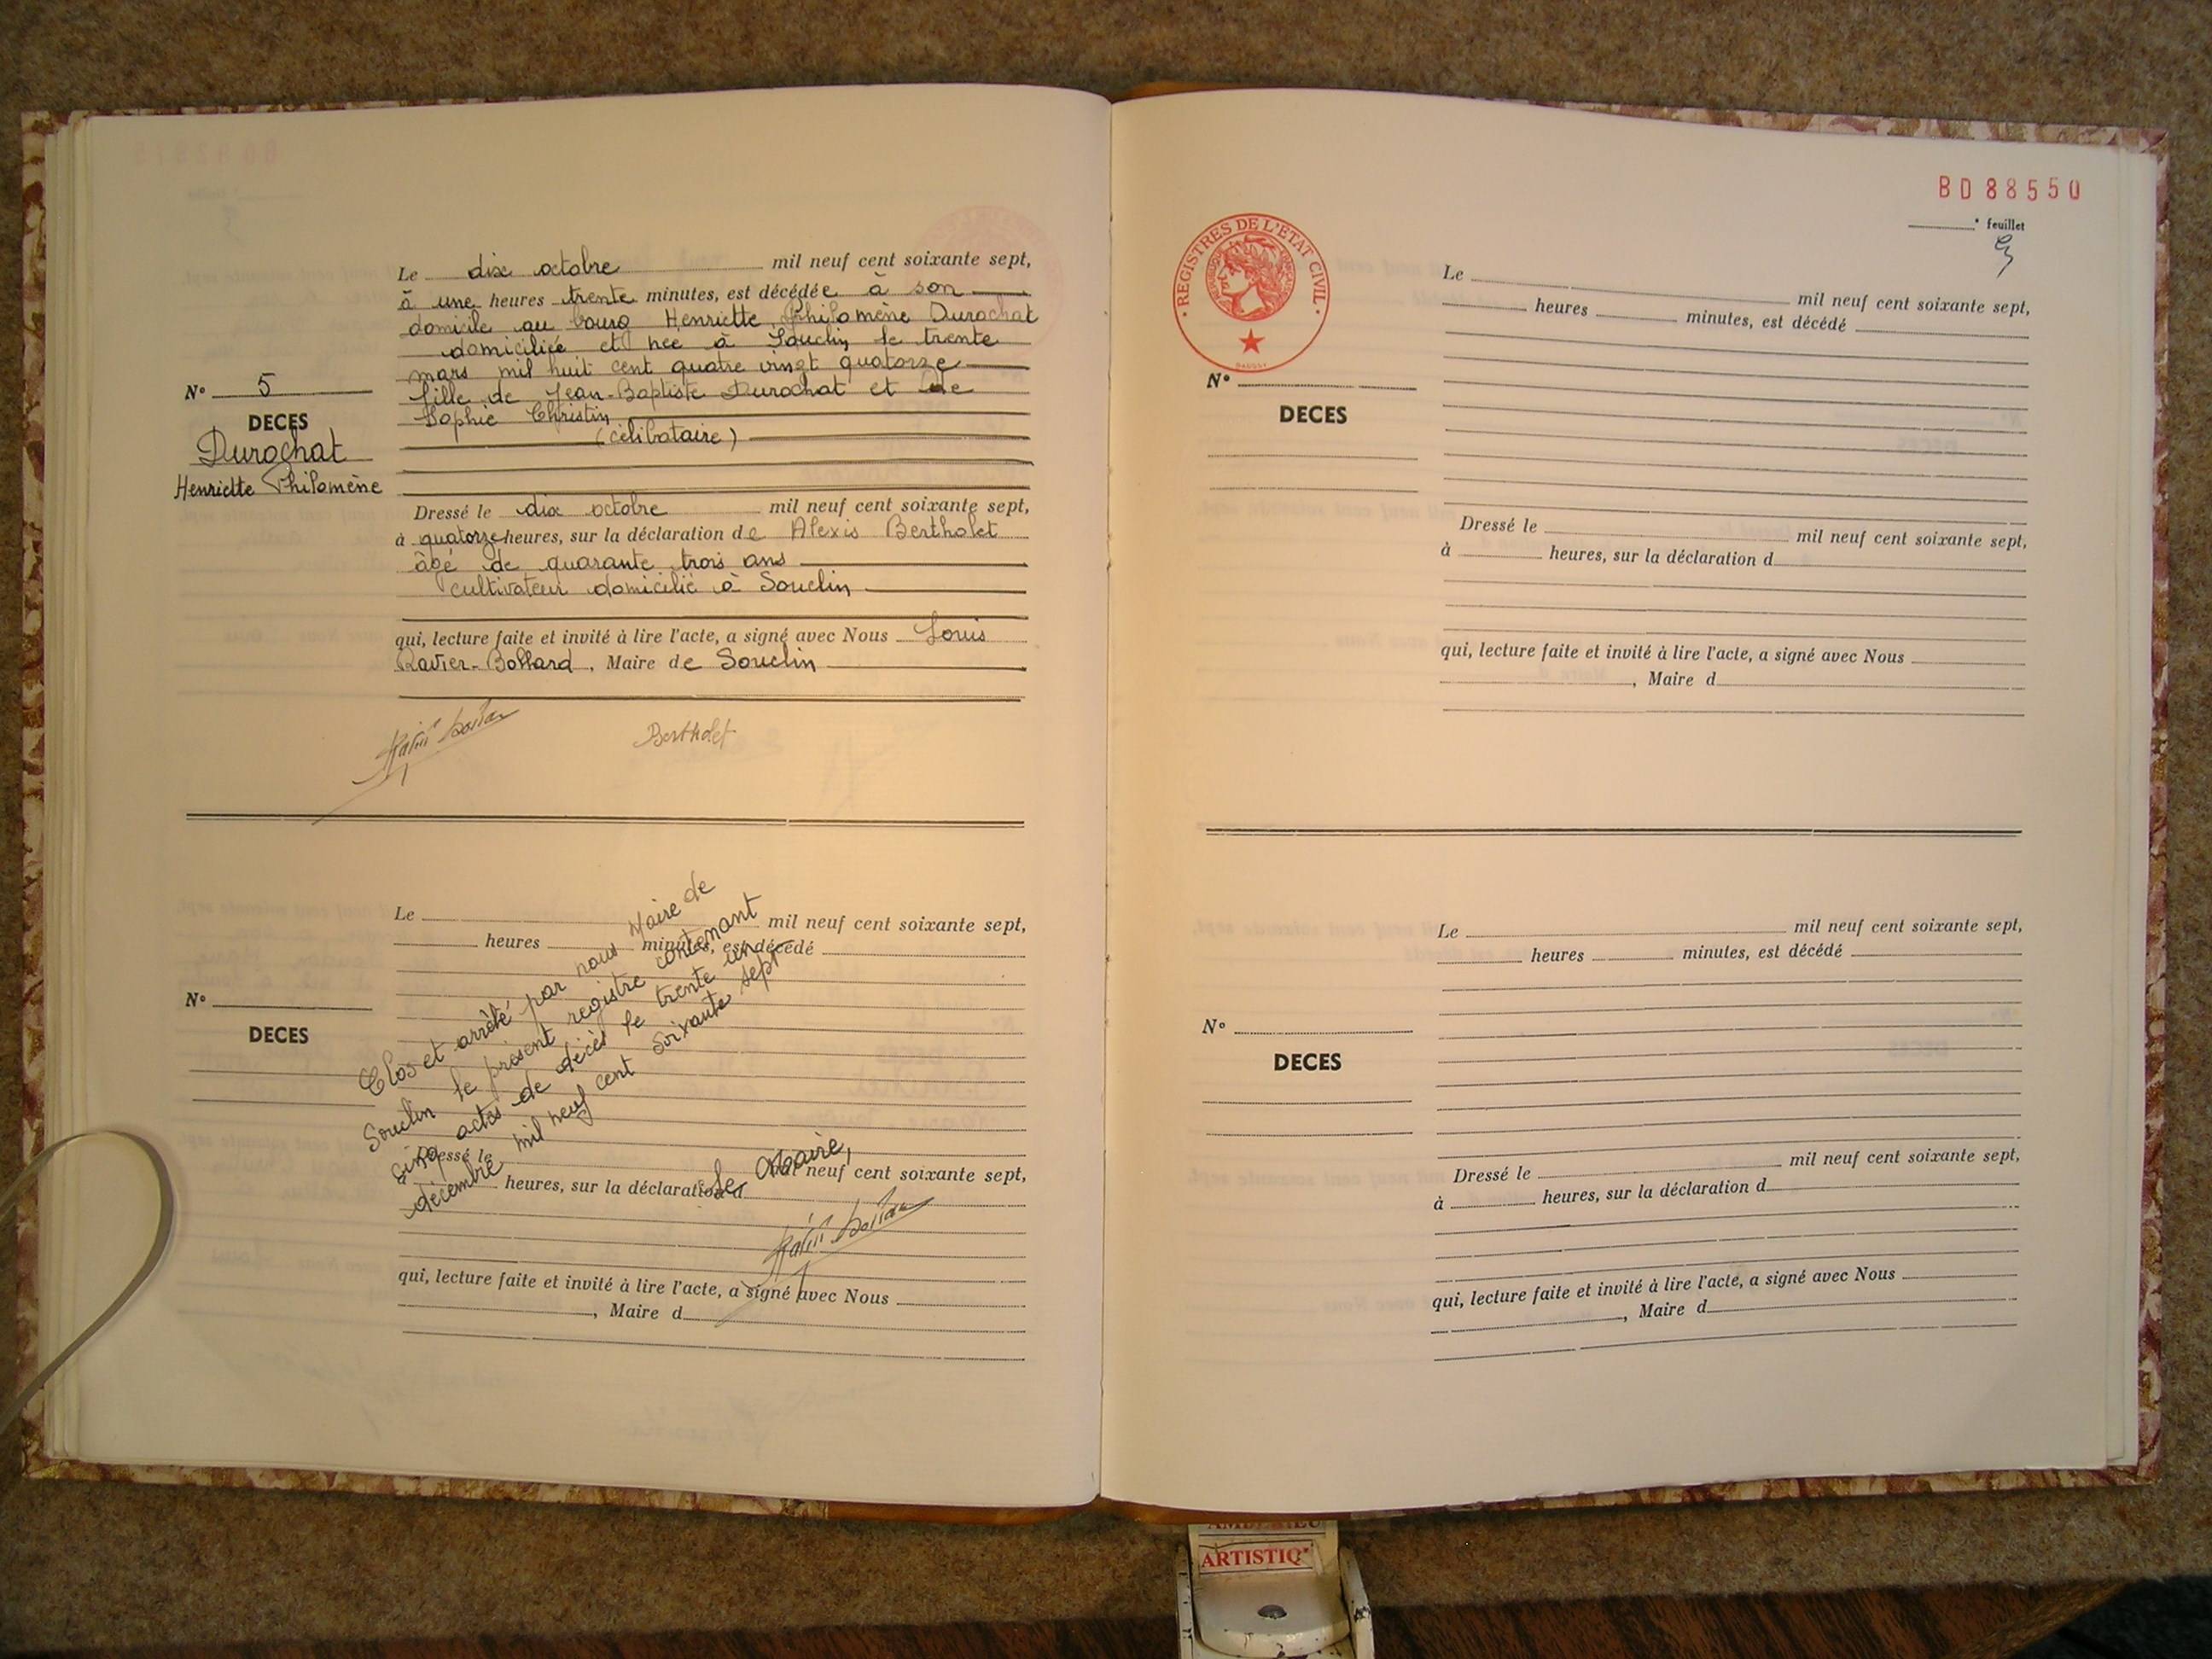 Le dix octobre mil neuf cent soixante sept,
à une heures trente minutes, est décédée à son
domicile au bourg Henriette Philomène Durochat
domiciliée et née à Souclin le trente
mars mil huit cent quatre vingt quatorze
fille de Jean-Baptiste Durochat et de
Sophie Christin
(célibataire)
N° 5
DECES
Durochat
Henriette Philomène
Dressé le dix octobre mil neuf cent soixante sept,
à quatorze heures, sur la déclaration de Alexis Bertholet
âgé de quarante trois ans
cultivateur domicilié à Souclin
qui, lecture faite et invité à lire l'acte, a signé avec Nous Louis
Ravier-Bollard, Maire de Souclin
Bertholet
Le mil neuf cent soixante sept,
heures minutes, est décédé
N°
DECES
Clos et arrêté par nous Maire de
Souclin le présent registre contenant
cinq actes de décès le trente un
décembre mil neuf cent soixante sept
Le Maire,
Dressé le mil neuf cent soixante sept,
à heures, sur la déclaration d
qui, lecture faite et invité à lire l'acte, a signé avec Nous
, Maire d
BD88550
° feuillet
REGISTRES DE L'ETAT CIVIL
Le mil neuf cent soixante sept,
heures minutes, est décédé
N°
DECES
Dressé le mil neuf cent soixante sept,
à heures, sur la déclaration d
qui, lecture faite et invité à lire l'acte, a signé avec Nous
, Maire d
Le mil neuf cent soixante sept,
heures minutes, est décédé
N°
DECES
Dressé le mil neuf cent soixante sept,
à heures, sur la déclaration d
qui, lecture faite et invité à lire l'acte, a signé avec Nous
, Maire d
ARTISTIQ